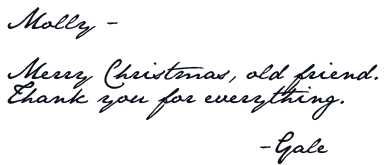 Molly -
Merry Christmas, old friend.
Thank you for everything.
-Gale